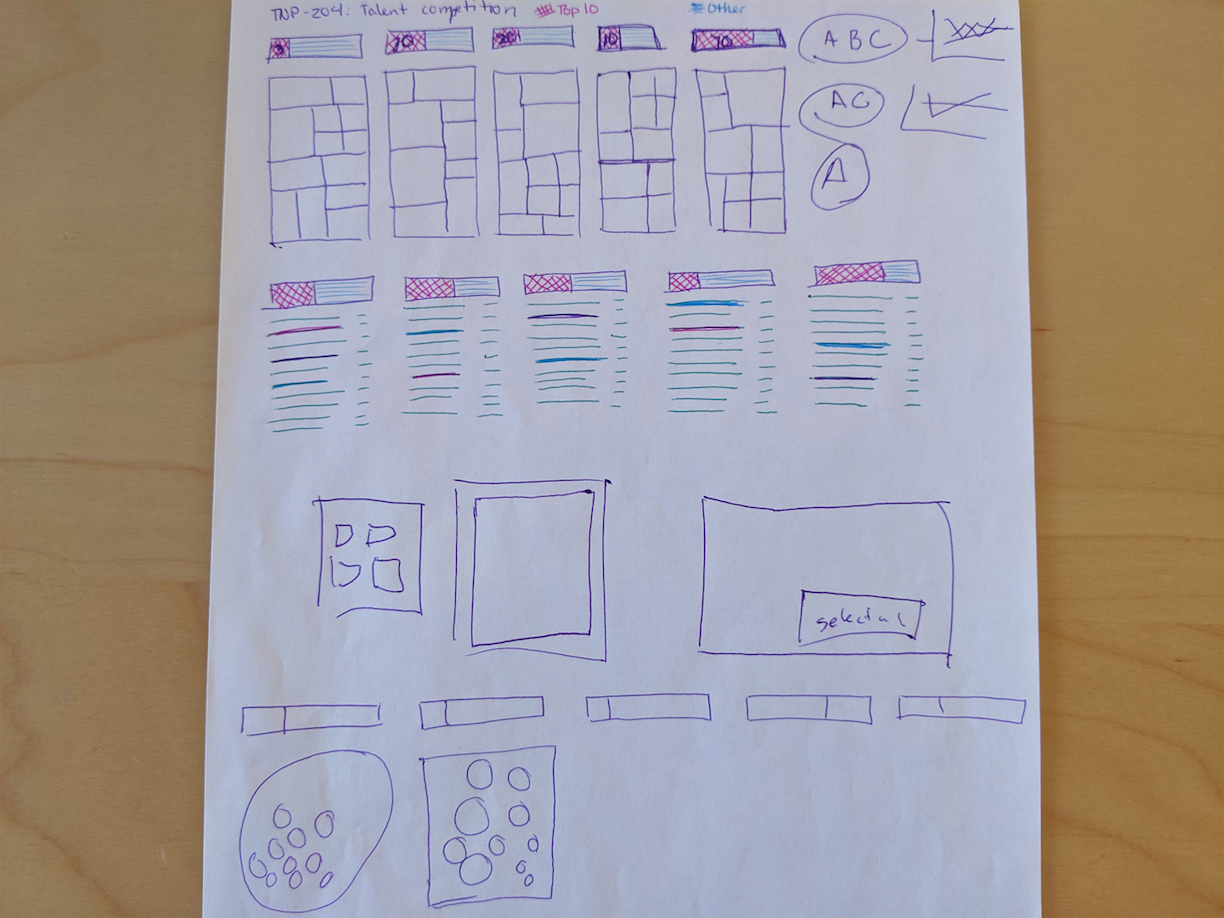 TNP-204: Talent competition Top 10 Other
10 20 10 70
A B C
AC
A
select